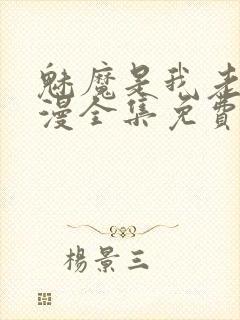 魅魔是我老
漫全集免费
杨景三